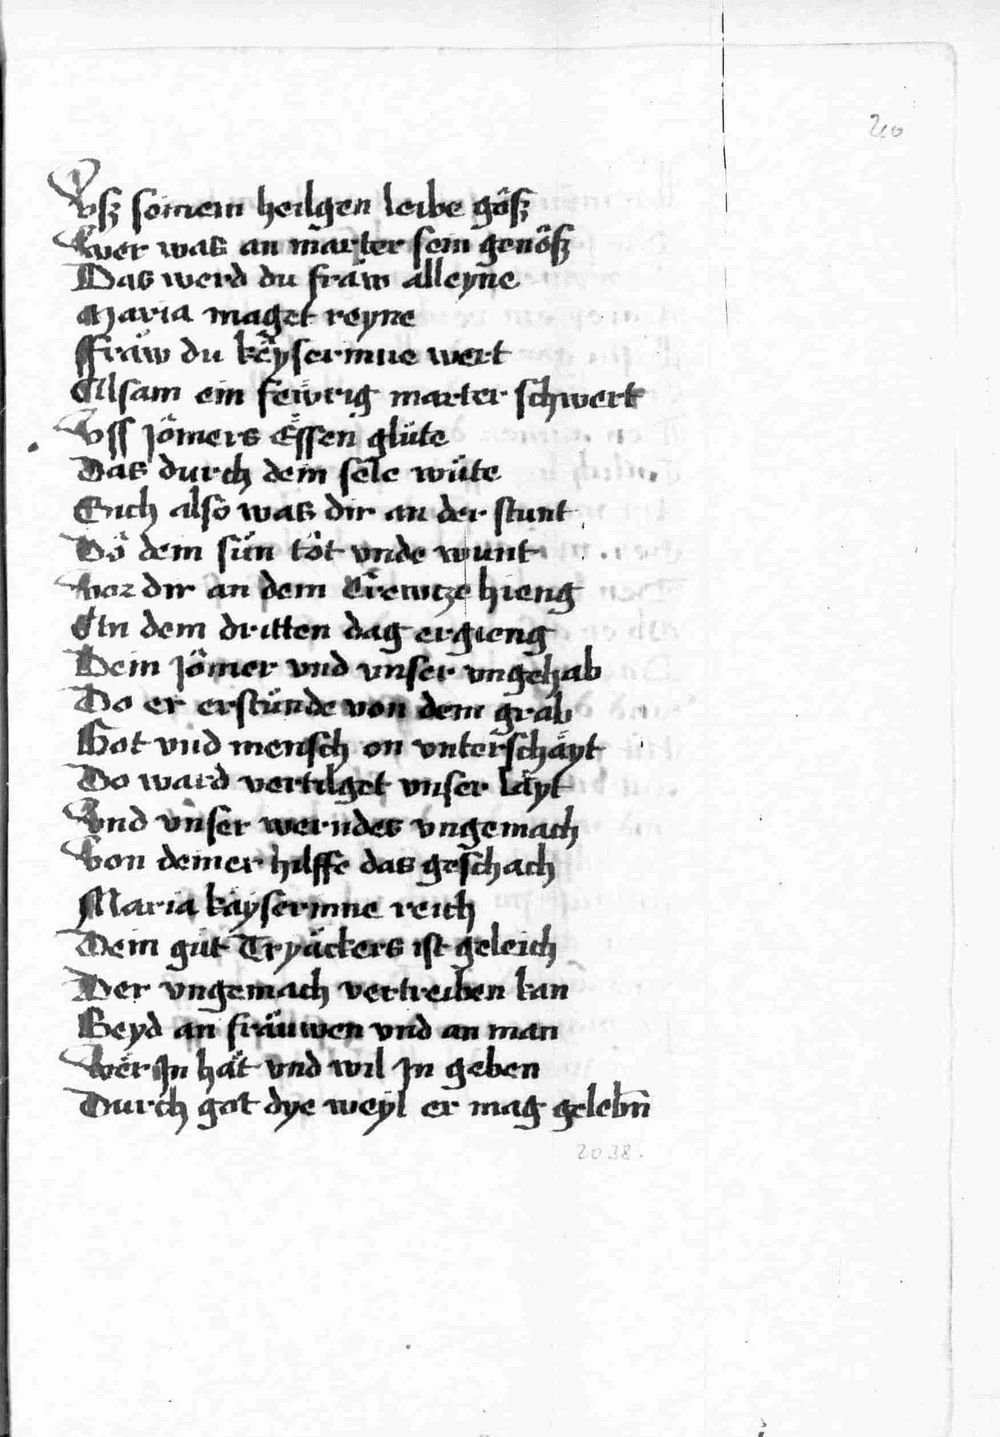 20
Vsz seinem heilgen leibe gösz
Wer was an marter sein genösz
Das werd du fraw alleyne
Maria maget reyne
Ffräw du keyserinne wert
Alsam ein fewrig marter schwert
Vss jomers Essen glüte
Das durch dein sele wüte
Euch also was dir an der stunt
Dô dein sün tôt vnde wunt
Vor dir an dem Crewtze hieng
An dem dritten dag ergieng
Dein jömer vnd vnser vngehab
Do er erstünde von dem grab
Got vnd mensch on vnterschäyt
Do ward vertilget vnser läyt
Vnd vnser werndes vngemach
Von deiner hilffe das geschach
Maria käyserinne reich
Dein güt Tryäckers ist geleich
Der vngemach vertreiben kan
Beyd an fräuwen vnd an man
Wer Jn hät vnd wil Jn geben
Durch got dye weyl er mag gelebn̄
2038.